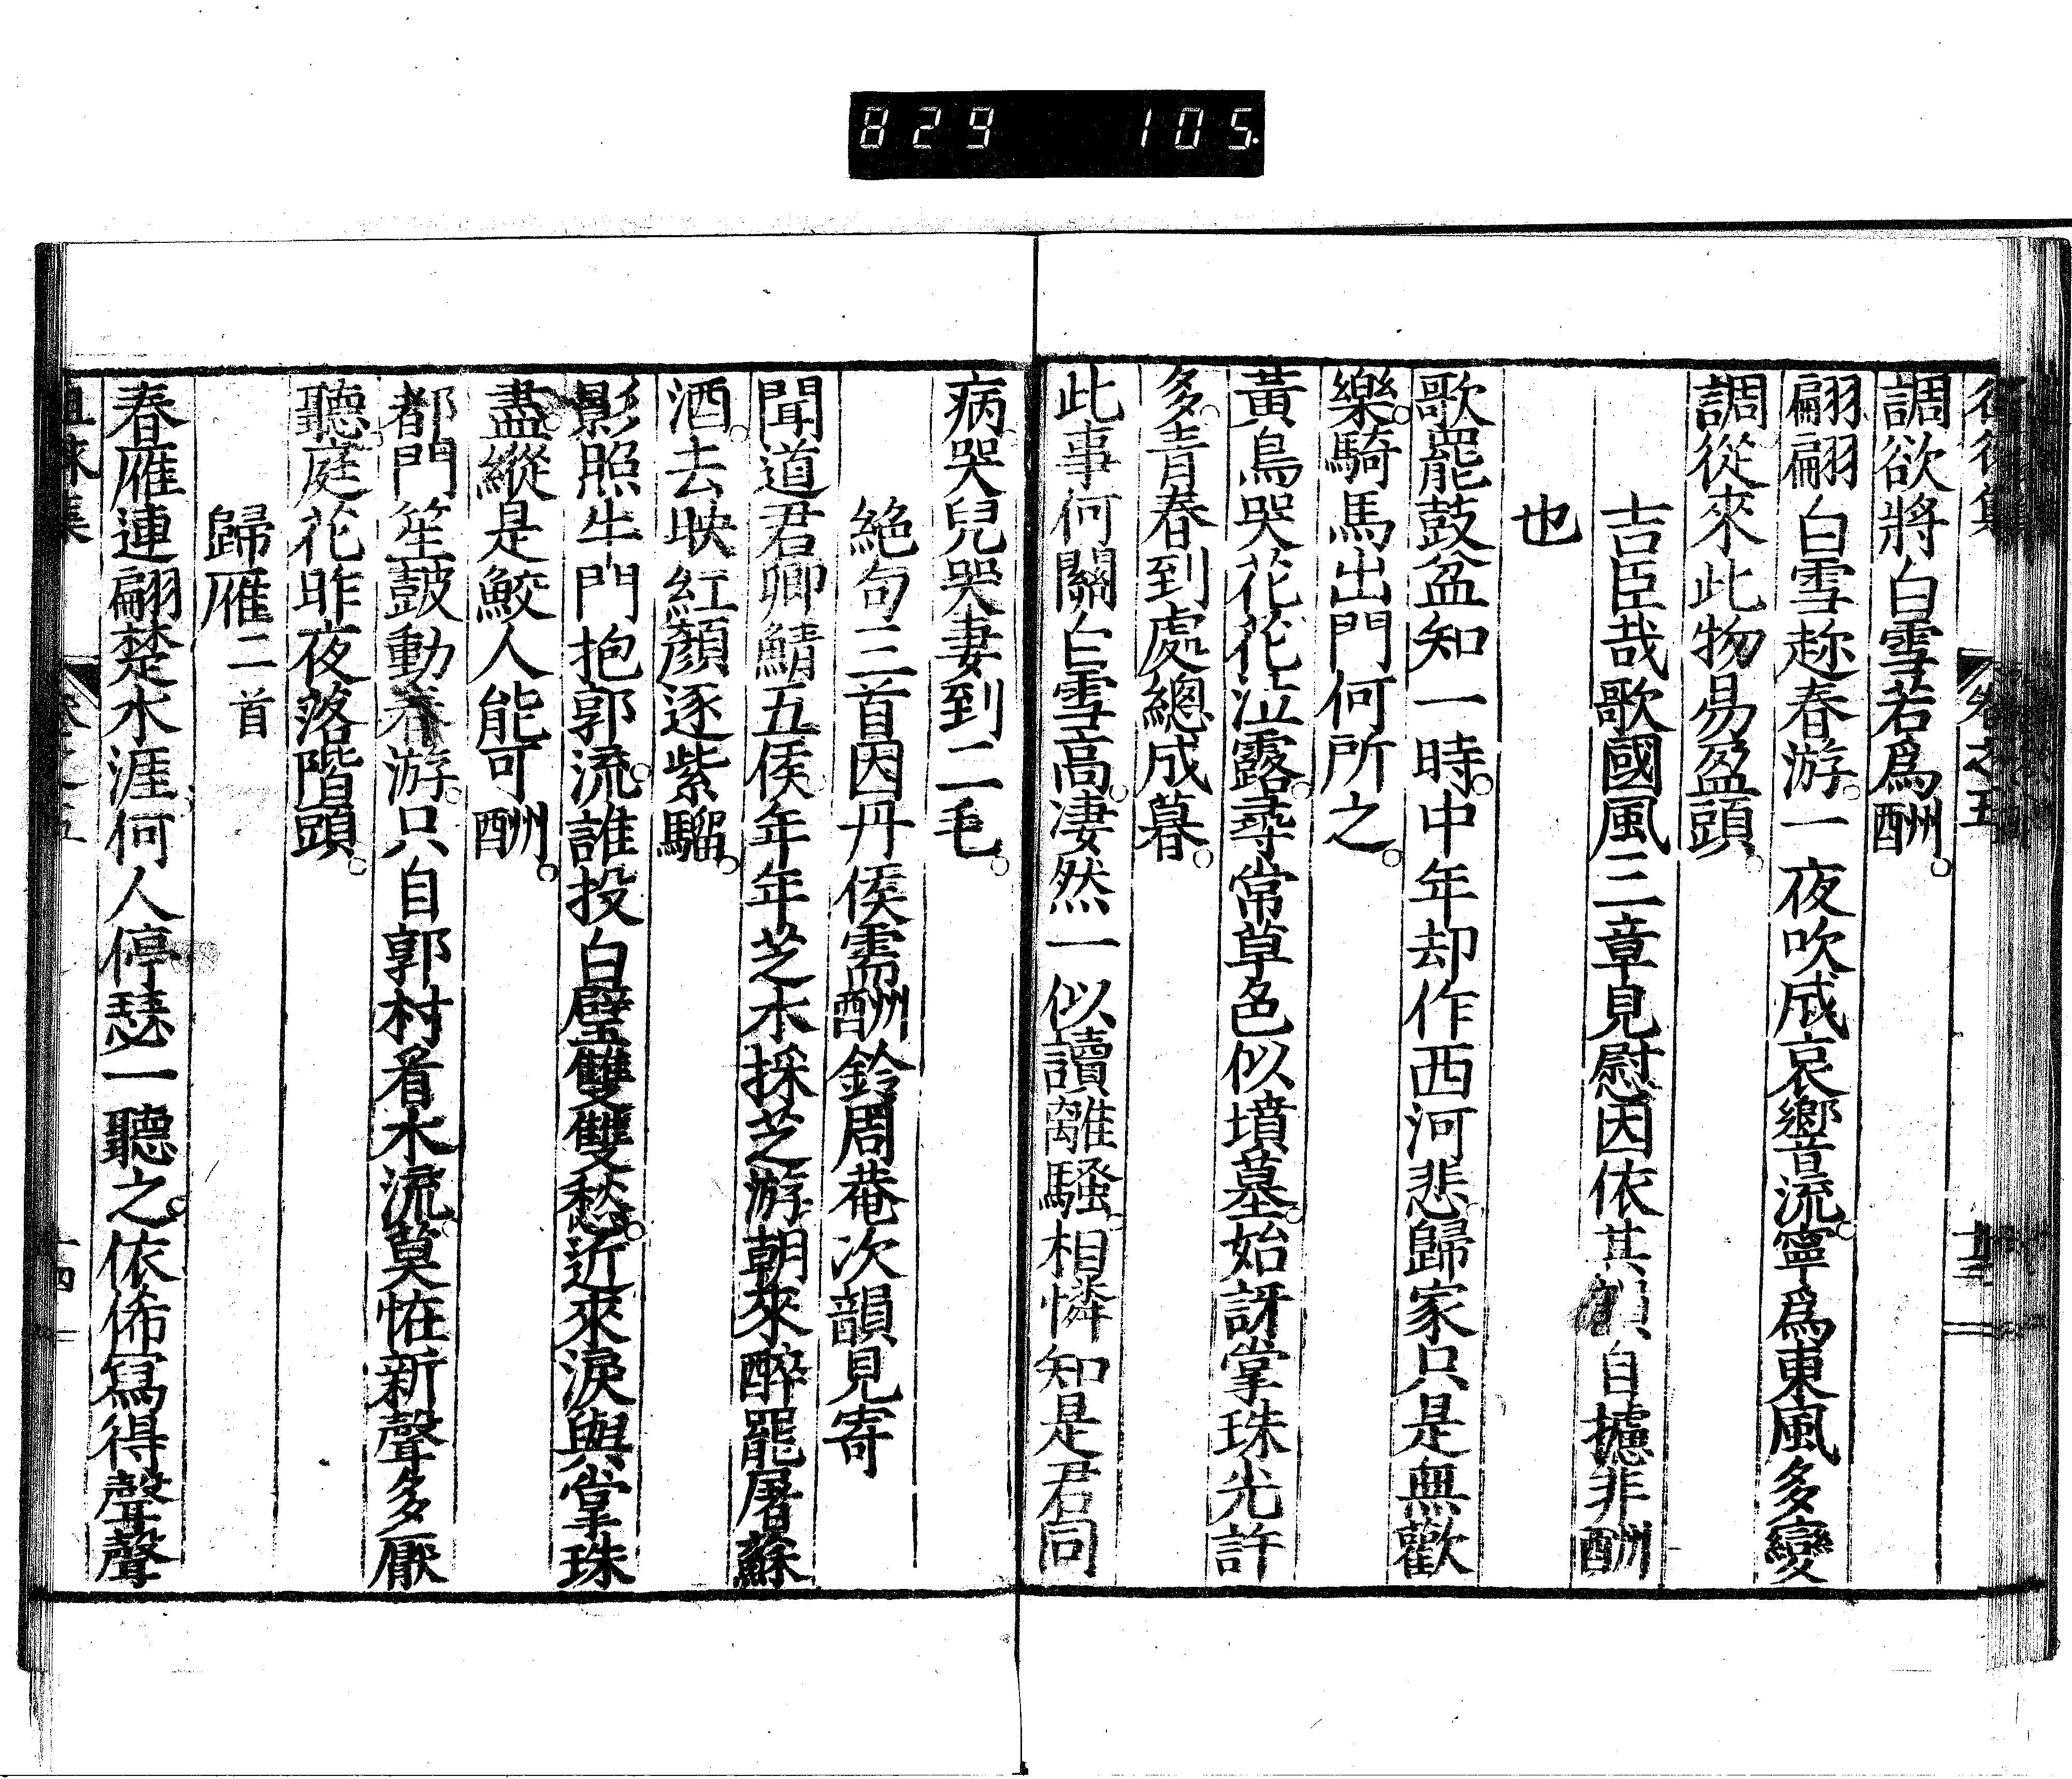 829 105
調欲將白雪若爲酬。
翩翩白雪趂春游。一夜吹成哀響流。寧爲東風多變
調從來此物易盈頭。
吉臣哉歌國風三章見慰因依其韻自攄非酬
也
歌罷鼓盆知一時。中年却作西河悲。歸家只是無歡
樂。騎馬出門何所之。
黃鳥哭花花泣露。尋常草色似墳墓。始訝掌珠光許
多。青春到處總成暮。
此事何關白雪高。淒然一似讀離騷。相憐知是君同
病。哭兒哭妻到二毛。
絕句三首因丹侯需酬鈴周菴次韻見寄
聞道君卿鯖五侯。年年芝木採芝游。朝來醉罷屠蘇
酒。去映紅顏逐紫騮。
影照牛門抱郭流。誰投白璧雙雙愁。近來淚與掌珠
盡。縱是鮫人能可酬。
都門笙鼓動春游。只自郭村看水流。莫恠新聲多厭
聽。庭花昨夜落階頭。
歸雁二首
春雁連翩楚水涯。何人停瑟一聽之。依俙寫得聲聲
卷之五
十三